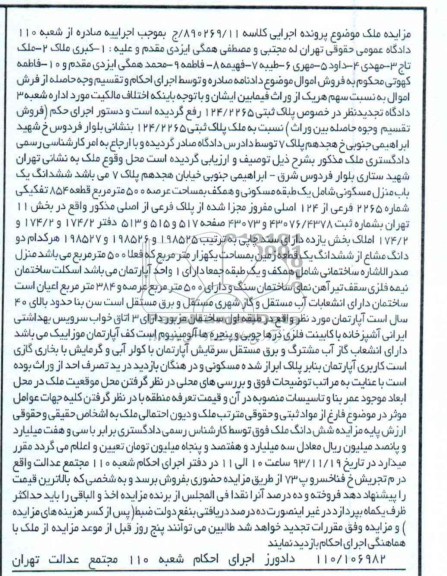 مزایده ملک موضوع پرونده اجرایی کلاسه ۸۹۰۲۶۹/۱۱/ج بموجب اجراییه صادره از شعبه ۱۱۰
دادگاه عمومی حقوقی تهران له مجتبی و مصطفی همگی ایزدی مقدم و علیه : ۱-کبری ملاک ۲-ملک
تاج ۳-مهدی ۴-داود ۵-مهری ۶-طیبه ۷-فهیمه ۸-فاطمه ۹-محمد همگی ایزدی مقدم و ۱۰-فاطمه
کهوتی محکوم به فروش اموال موضوع دادنامه صادره و توسط اجرای احکام و تقسیم وجه حاصله از فرش
اموال به نسبت سهم هریک از وراث فیمابین ایشان و با توجه باینکه اختلاف مالکیت مورد اداره شعبه ۳
دادگاه تجدیدنظر در خصوص پلاک ثبتی ۱۲۴/۲۲۶۵ رفع گردیده است و دستور اجرای حکم (فروش
تقسیم وجوه حاصله بین وراث ) نسبت به ملک پلاک ثبتی ۱۲۴/۲۲۶۵ بنشانی بلوار فردوس خ شهید
ابراهیمی جنوبی خ هجدهم پلاک ۷ توسط دادرس دادگاه صادر گردیده و با ارجاع به امر کارشناسی رسمی
دادگستری ملک مذکور بشرح ذیل توصیف و ارزیابی گردیده است محل وقوع ملک به نشانی تهران
شهید ستاری بلوار فردوس شرق - ابراهیمی جنوبی خیابان هجدهم پلاک ۷ می باشد ششدانگ یک
باب منزل مسکونی شامل یک طبقه مسکونی و همکف بمساحت عرصه ۵۰۰ مترمربع قطعه ۸۵۴ تفکیکی
شماره ۲۲۶۵ فرعی از ۱۲۴ اصلی مفروز مجزا شده از پلاک فرعی از اصلی مذکور واقع در بخش ۱۱
تهران بشماره ثبت ۴۳۰۷۶/۴۳۷۸ و ۴۳۰۷۳ صفحه ۵۱۷ و ۵۱۵ و ۵۱۳ دفتر ۱۷۴/۲ و ۱۷۴/۲ و
۱۷۴/۲ املاک بخش یازده دارای سند چاپی به ترتیب ۱۹۸۵۲۵ و ۱۹۸۵۲۶ و ۱۹۸۵۲۷ هرکدام دو
دانگ مشاع از ششدانگ یک قطعه زمین بمساحت یکهزار متر مربع که فعلا ۵۰۰ مترمربع می باشد منزل
صدرالاشاره ساختمانی شامل همکف و یک طبقه جمعا دارای ۱ واحد آپارتمان می باشد اسکلت ساختمان
نیمه فلزی سقف تیرآهن نمای ساختمان سنگ و دارای ۵۰۰ مترمربع عرصه و ۳۸۴ متر مربع اعیان است
ساختمان دارای انشعابات آب مستقل و گاز شهری مستقل و برق مستقل است سن بنا حدود بالای ۴۰
سال است آپارتمان مورد نظر واقع در طبقه اول ساختمان مزبور دارای ۳ اتاق خواب سرویس بهداشتی
ایرانی آشپزخانه با کابینت فلزی درها چوبی و پنجره ها آلومینیوم است کف آپارتمان موزاییک می باشد
دارای انشعاب گاز آب مشترک و برق مستقل سرمایش آپارتمان با کولر آبی و گرمایش با بخاری گازی
است کاربری آپارتمان بنابر پلاک ابراز شده مسکونی و در هنگان بازدید در ید تصرف احد از وراث بوده
است با عنایت به مراتب توضیحات فوق و بررسی های محلی در نظر گرفتن محل موقعیت ملک در محل
ابعاد موجود عمر بنا و تاسیسات منصوبه در آن و قیمت تعرفه منطقه با در نظر گرفتن کلیه جهات عوامل
موثر در موضوع فارغ از مواد ثبتی و حقوقی مترتب ملک و دیون احتمالی ملک به اشخاص حقیقی و حقوقی
ارزش پایه مزایده شش دانگ ملک فوق توسط کارشناس رسمی دادگستری برابر با سی و هفت میلیارد
و پانصد میلیون ریال معادل سه میلیارد و هفتصد و پنجاه میلیون تومان تعیین و اعلام می گردد مقرر
میدارد در تاریخ ۹۳/۱۱/۱۹ ساعت ۱۰ الی ۱۱ در دفتر اجرای احکام شعبه ۱۱۰ مجتمع عدالت واقع
در م تجریش خ فناخسرو پ ۷۳ از طریق مزایده حضوری بفروش برسد و به شخصی که بالاترین قیمت
را پیشنهاد دهد فروخته و ده درصد آنرا نقدا فی المجلس از برنده مزایده اخذ و الباقی را باید حداکثر
ظرف یکماه بپردازد در غیر اینصورت ده درصد دریافتی بنفع دولت ضبط( پس از کسر هزینه های مزایده
) و مزایده وفق مقررات تجدید خواهد شد طالبین می توانند پنج روز قبل از موعد مزایده از ملک با
هماهنگی اجرای احکام بازدید نمایند
۱۱۰/۱۰۶۹۸۲ دادورز اجرای احکام شعبه ۱۱۰ مجتمع عدالت تهران